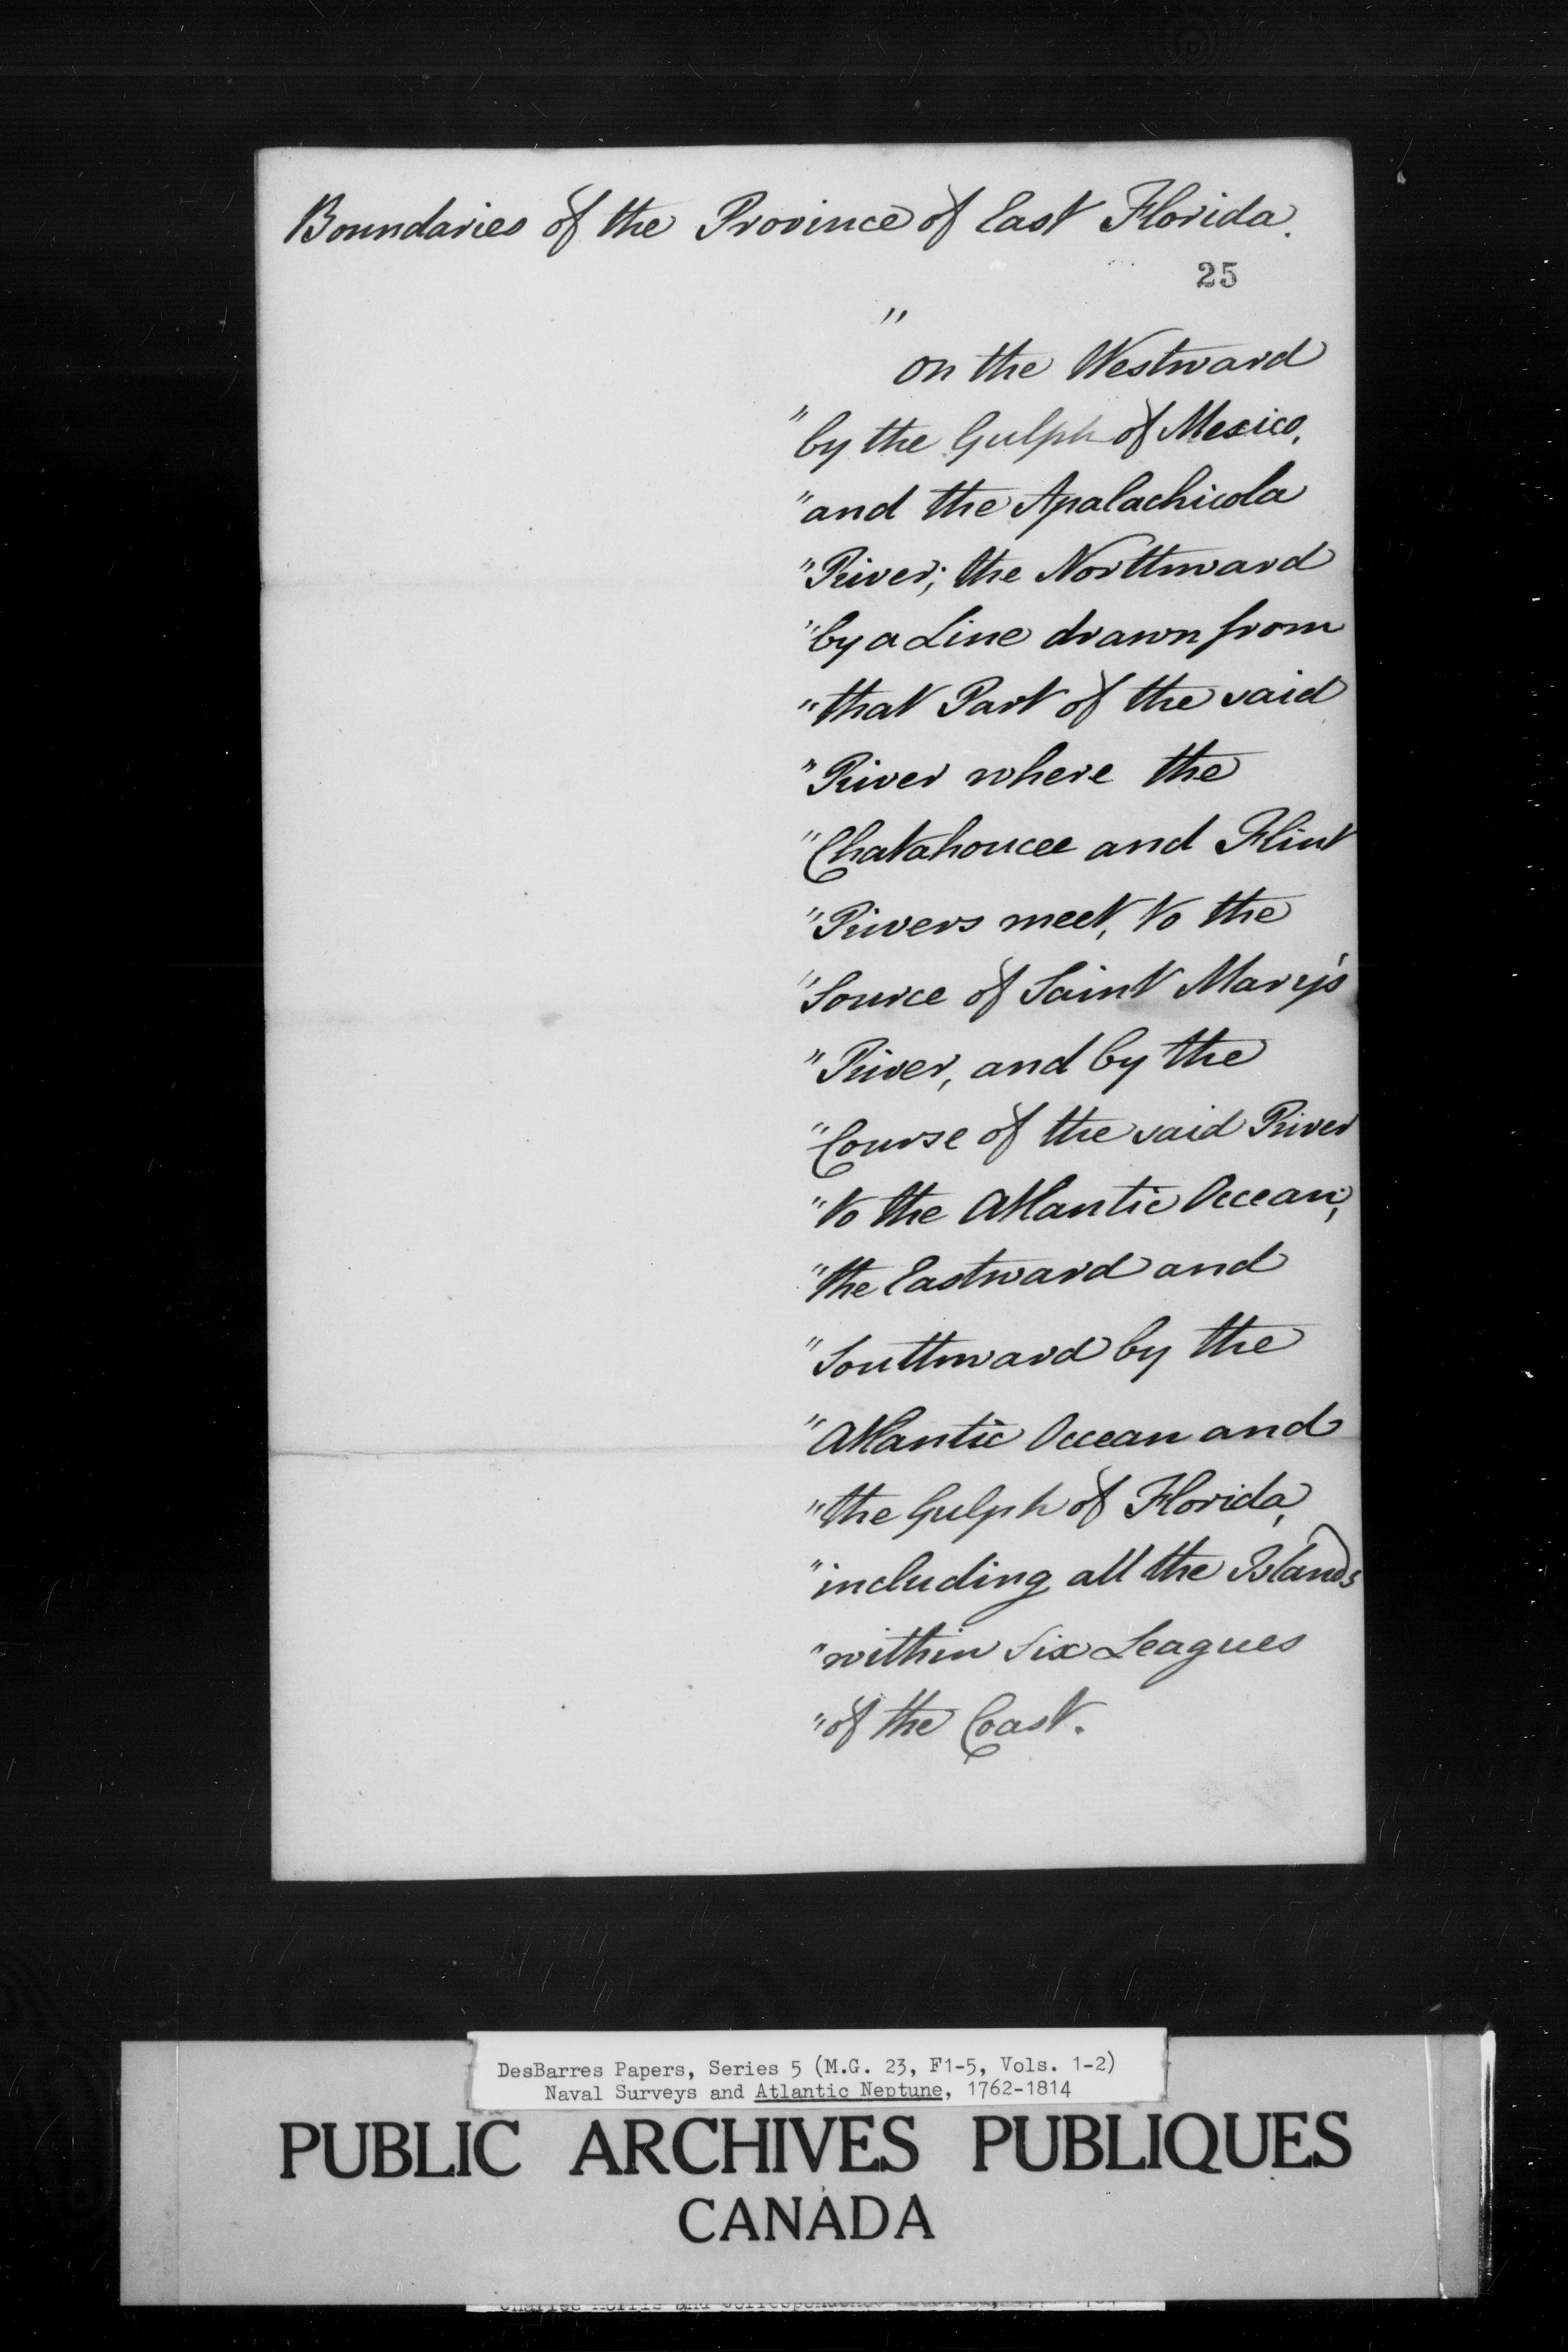 Boundaries of the Province of East Florida.
25
"
on the Westward
"by the Gulph of Mexico,
"and the Apalachicola
"River; the Northward
"by a Line drawn from
"that Part of the said
"River where the
"Chatahoucee and Flint
"Rivers meet, to the
"Source of Saint Mary's
"River, and by the
"Course of the said River
"to the Atlantic Occean;
"the Eastward and
"Southward by the
"Atlantic Occean and
"the Gulph of Florida,
"including all the Islands
"within Six Leagues
"of the Coast.
DesBarres Papers, Series 5 (M.G. 23, F1-5, Vols. 1-2)
Naval Surveys and Atlantic Neptune, 1762-1814
PUBLIC ARCHIVES PUBLIQUES
CANADA